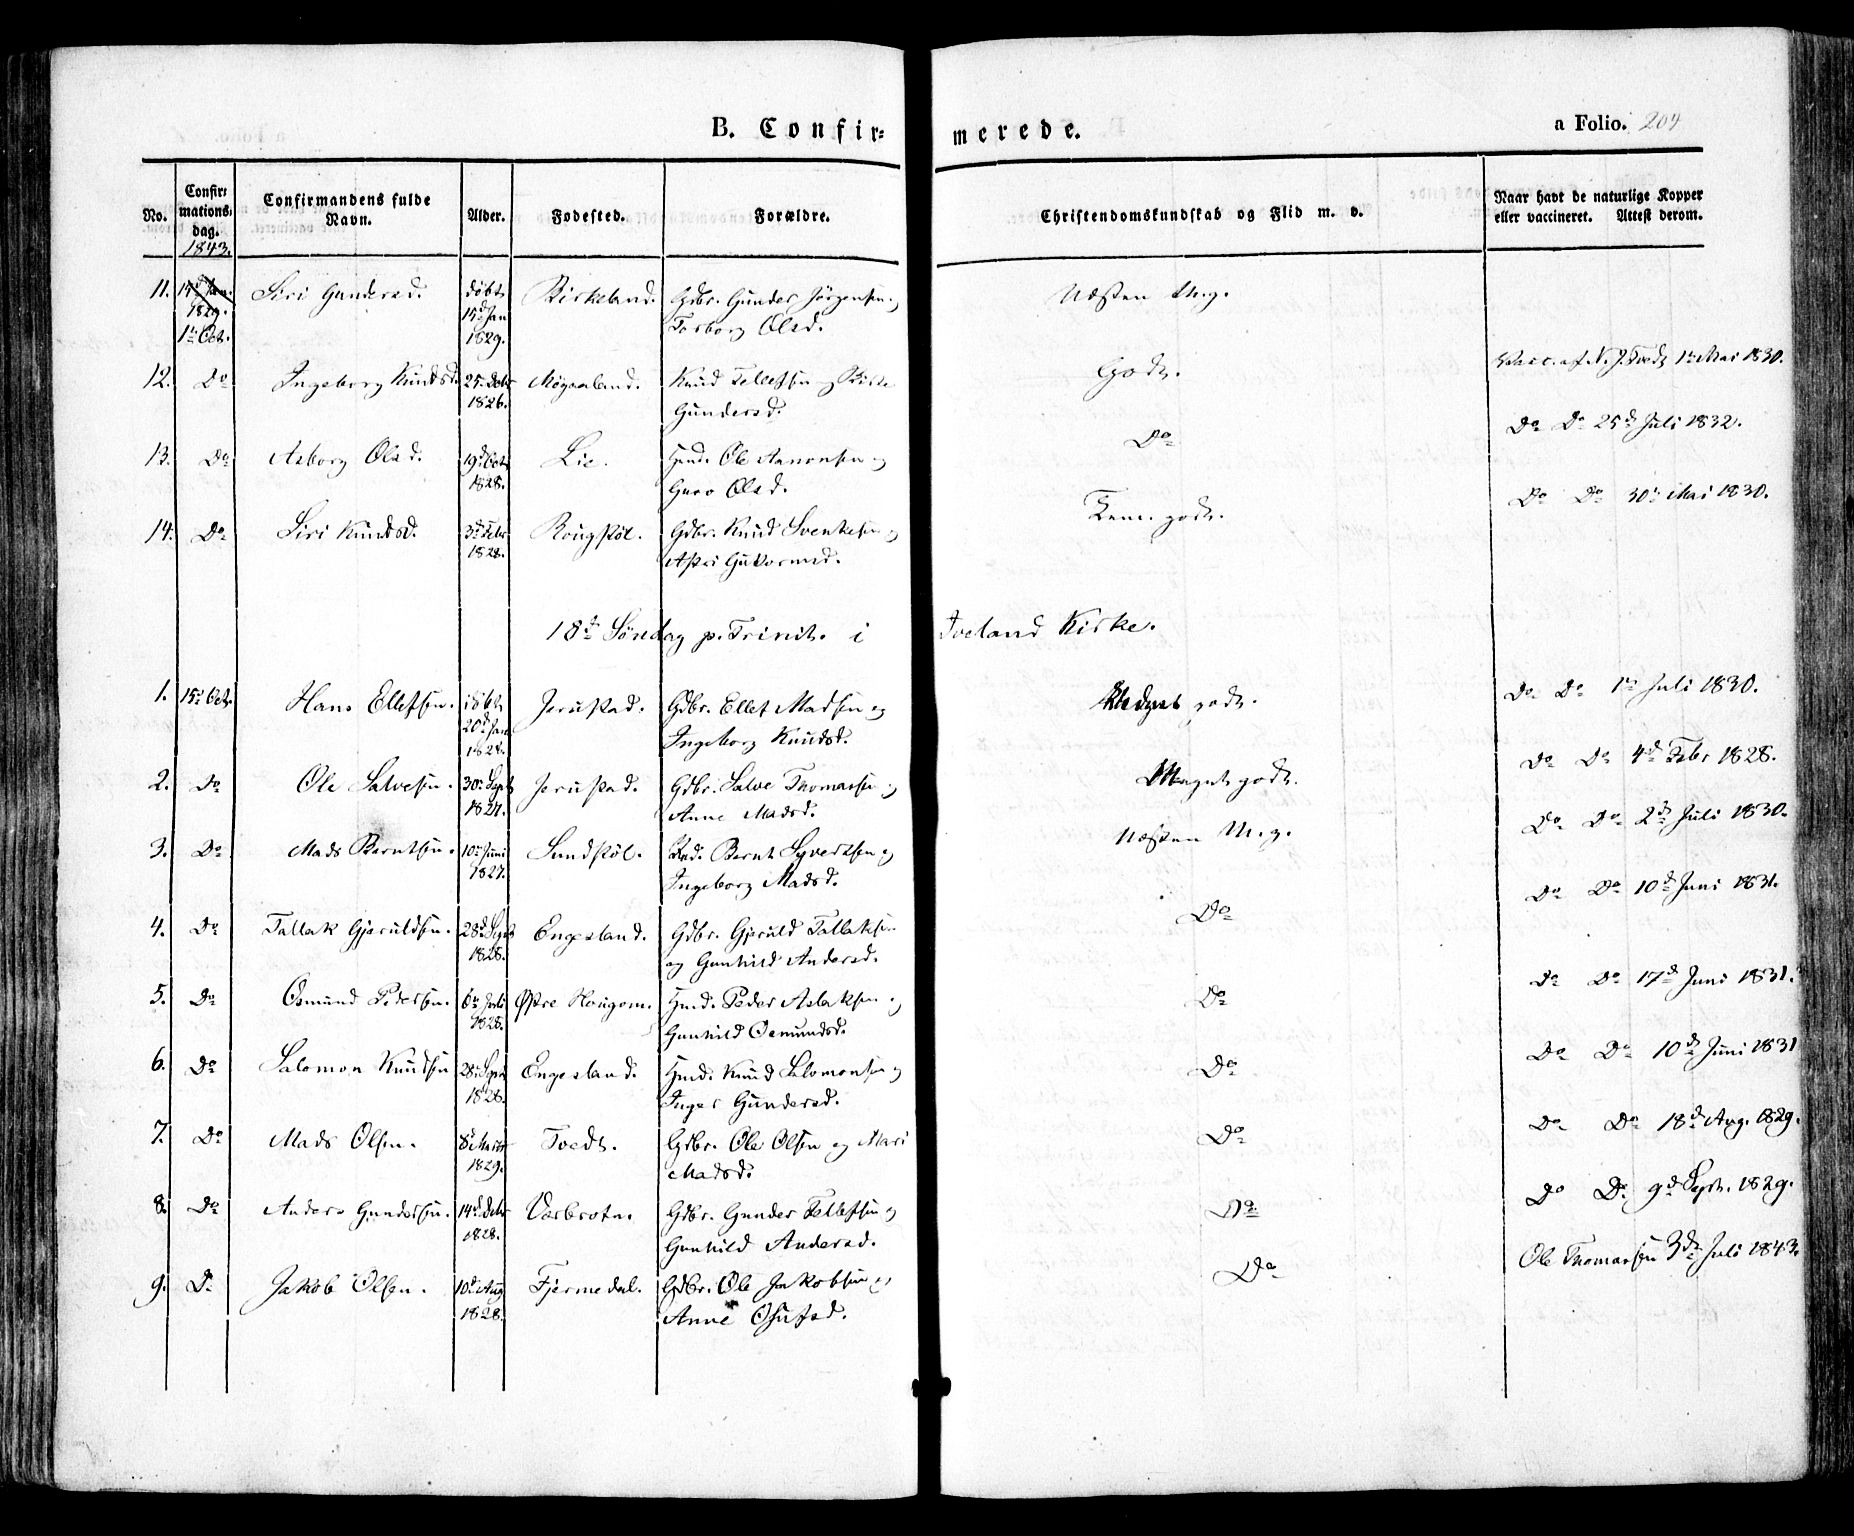 B. Confir=
merede.
a Folio. 204
No.
Confir=
mations=
dag.
1843.
Confirmandens fulde
Navn.
Alder.
Fødested.
Forældre.
Christendomskundskab og Flid m. v.
Naar havt de naturlige Kopper
eller vaccineret. Attest derom.
11. 1ste Oct. Siri Gundersd. døbt 15d Jan 1829. Birkeland. Gdbr. Gunder Jörgensen og
Torborg Olsd.
Næsten M.g.
Vacc. af N. J. Tvedt 1ste Mai 1830.
12. Do Ingeborg Knudsd. 25. Debr 1826. Knud Tellefsen og
Gundersd.
Godt.
Do Do 25d Juli 1832.
13. Do Asborg Olsd. 19d Octr 1828. Lie. Hmd. Ole Aanonsen og
Guro Olsd.
Do
Do Do 30te Mai 1830.
14. Do Siri Knudsd. 3d Febr 1828. Rougstøl. Gdbr. Knud Svenkesen og
Astri Guttormsd.
Temm. godt.
18de Søndag p. Trinit. i
Iveland Kirke.
1. 15. Oct. Hans Ellefsen. døbt 20d Jan 1828. Jerustad. Gdbr. Ellef Madsen og
Ingeborg Knudsd.
Meget godt.
Do Do 1ste Juli 1830.
2. Do Ole Salvesen. 30. Sept 1827. Jerustad. Gdbr. Salve Thomassen og
Anne Madsd.
Meget godt.
Do Do 4d Febr 1828.
3. Do Mads Berntsen. 10. Juni 1827. Sundstøl. Bernt Syvertsen og
Ingeborg Madsd.
Næsten M.g.
Do Do 2d Juli 1830.
4. Do Tallak Gjeruldsen. 28d Sept 1828. Engesland. Gdbr. Gjeruld Tallaksen
og Gunhild Andersd.
Do
Do Do 10d Juni 1831.
5. Do Osmund Pedersen. 6te Juli 1828. Østre Hougom. Hmd. Peder Aslaksen og
Gunhild Osmundsd.
Do
Do Do 17d Juni 1831.
6. Do Salomon Knudsen 28. Sept 1828. Engesland. Hmd. Knud Salomonsen og
Inger Gundersd.
Do
Do Do 10d Juni 1831
7. Do Mads Olsen. 8d Marts 1829. Tvedt. Gdbr. Ole Olsen og Mari
Madsd.
Do
Do Do 18d Aug. 1829.
8. Do Anders Gundersen. 14d Debr 1828. Værbrotn. Gdbr. Gunder Tellefsen og
Gunhild Andersd.
Do
Do Do 9d Sept. 1829.
9. Do Jakob Olsen. 10d Aug 1828. Fjermedal. Gdbr. Ole Jakobsen og
Anne Osufsd.
Do
Ole Thomassen 3d Juli 1843.